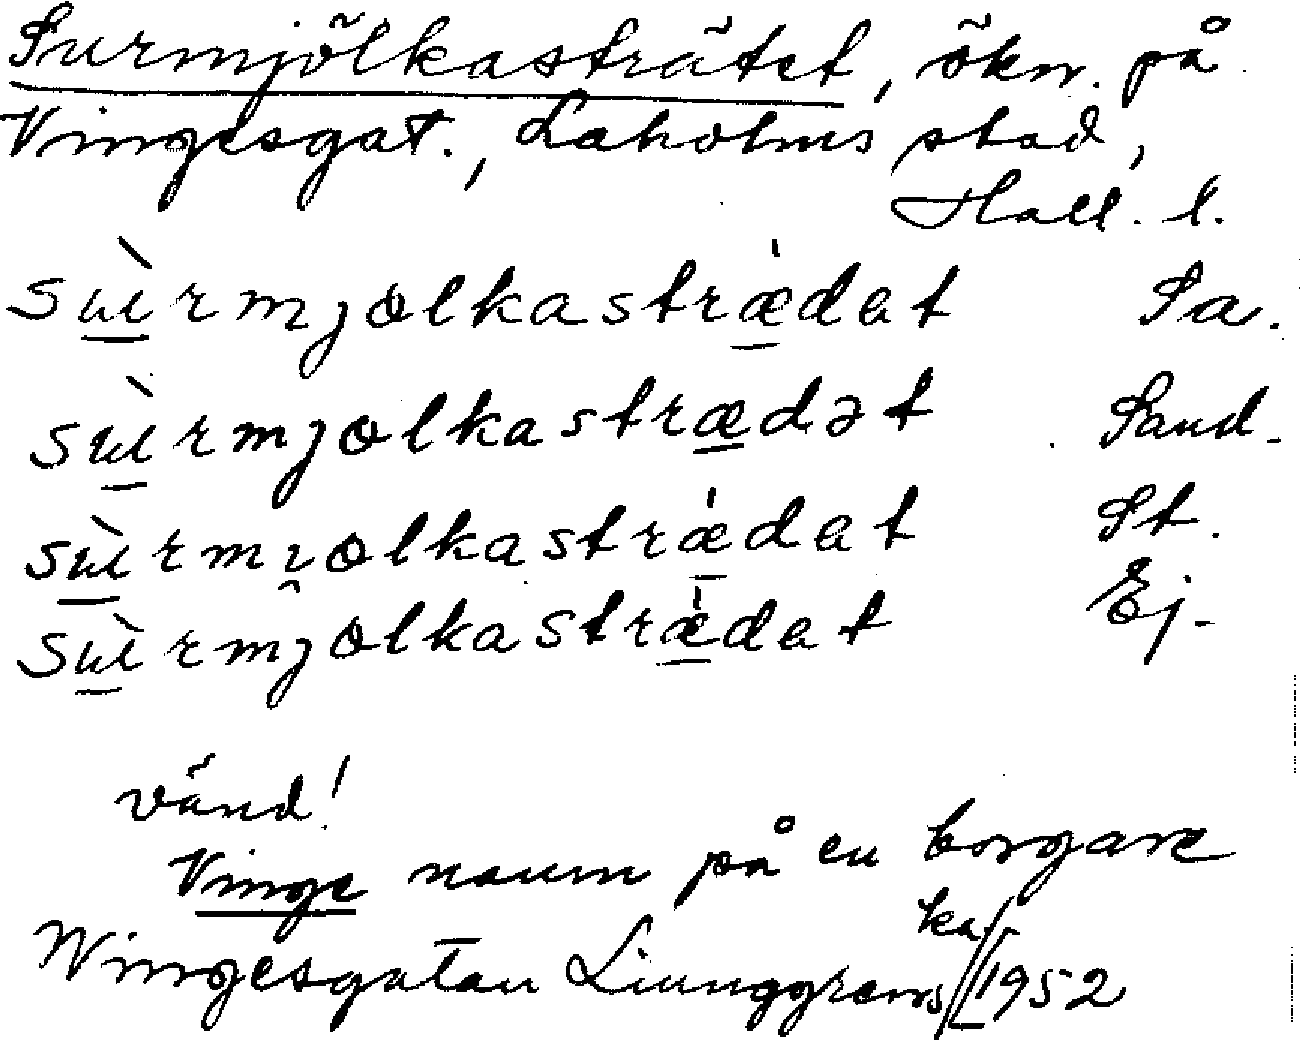 Surmjölkasträtet, ökn. på
Vingesgat., Laholms stad,
Hall. l.
sùrmjölkastrædat Sa.
sùrmjolkastrædət Sand.
sùrmjolkastrædat St.
sùrmjolkastrædat Ej.
vänd!
Vinge namn på en borgare
ka
Wingesgatan Liunggrens 1952